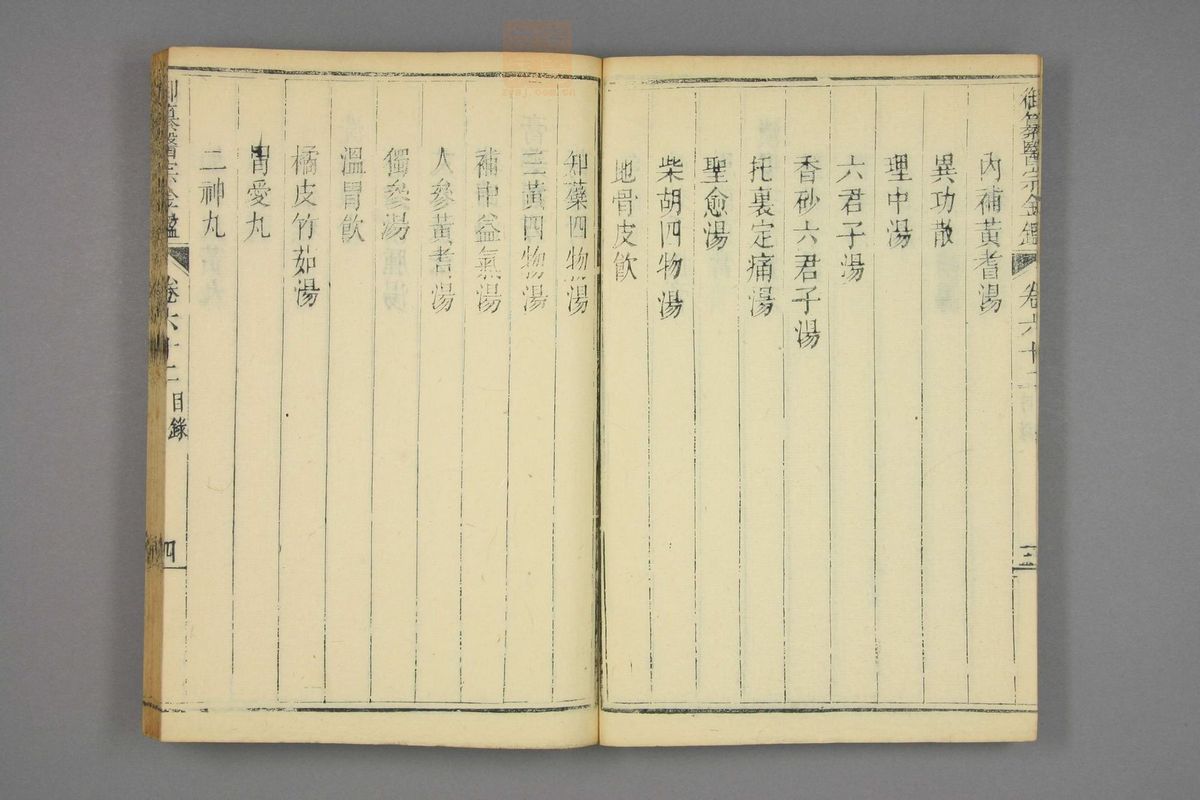 御纂醫宗金鑑 卷六十二
三
內補黃耆湯
異功散
理中湯
六君子湯
香砂六君子湯
托裏定痛湯
聖愈湯
柴胡四物湯
地骨皮飲
知藥四物湯
三黃四物湯
補中益氣湯
人參黃耆湯
獨參湯
溫胃飲
橘皮竹茹湯
胃愛丸
二神丸
御纂醫宗金鑑 卷六十二 目錄
四